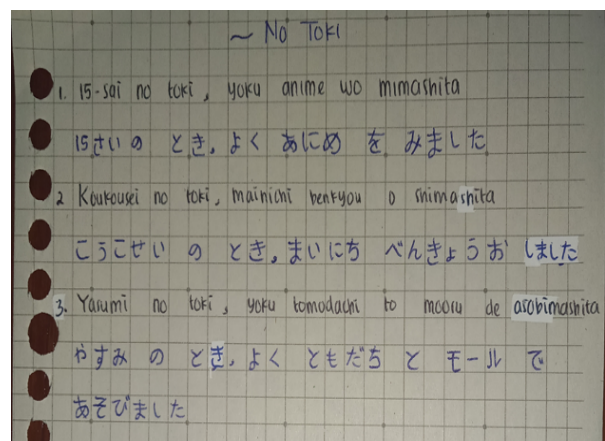 ~ No Toki
1. 15-sai no toki, yoku anime wo mimashita
15さいの とき, よく あにめ を みました
2 Koukousei no toki, mainichi benkyou o shimashita
こうこせい の とき, まいにち べんきょうお しました
3. Yasumi no toki, yoku tomodachi to mooru de asobimashita
やすみ の とき, よく ともだち と モール で
あそびました